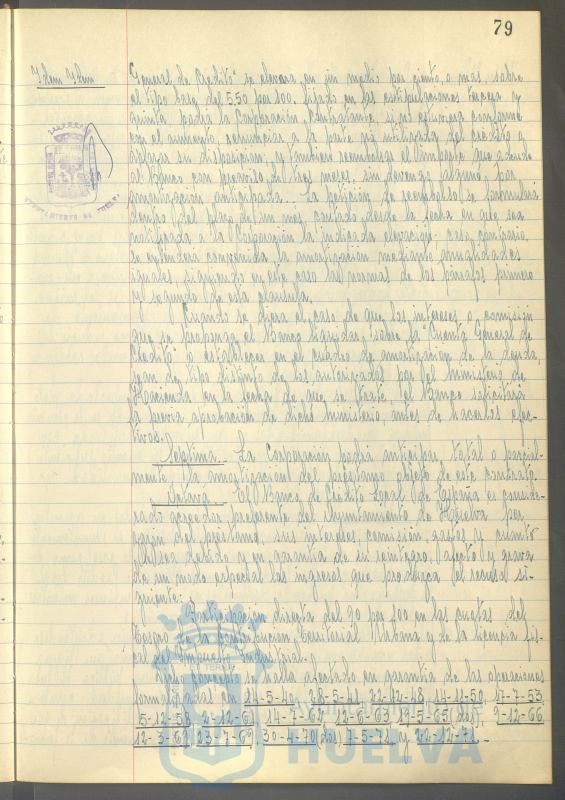 79
Idem Idem
General de Crédito" se elevara en un medio por ciento, o mas, sobre
el tipo base del 5,50 por 100, fijado en las estipulaciones tercera y
quinta podra la Corporación contratante, si no estuviera conforme
con el aumento, renunciar a la parte no utilizada del credito a
su disposición; y tambien reembolsar el importe que adeude
al Banco con preaviso de tres meses sin devengo alguno por
amortización anticipada. La petición de reembolso se formulará
dentro del plazo de un mes contado desde la fecha en que sea
notificada a la Corporación la indicada elevación; caso contrario,
se entenderá convenida la amortización mediante anualidades
iguales, siguiendo en este caso las normas de los párrafos primero
y segundo de esta clausula.
Cuando se diera el caso de que los intereses o comisión
que se proponga el Banco liquidar sobre la "Cuenta General de
Credito" o establecer en el cuadro de amortización de la deuda,
sean de tipo distinto de los autorizados por el Ministerio de
Hacienda en la fecha de que se trate, el Banco solicitará
la previa aprobación de dicho Ministerio, antes de hacerlos efec-
tivos.
Septima. La Corporación podrá anticipar, total o parcial-
mente la amortización del prestamo objeto de este contrato.
Octava. El Banco de Crédito Local de España es conside-
rado acreedor preferente del Ayuntamiento de Huelva por
razon del prestamo, sus intereses, comisión, gastos y cuanto
le sea debido y en garantia de su reintegro, afecta y grava
de un modo especial los ingresos que produzca el recurso si-
guiente:
Participación directa del 90 por 100 en las cuotas del
Tesoro de la Contribucion Territorial Urbana y de la licencia fis-
cal del impuesto industrial.
Este recurso se halla afectado en garantía de las operaciones
formalizadas en 24-5-40, 28-5-41, 22-12-48, 14-12-50, 17-7-53,
5-12-58, 2-12-61, 14-7-62, 12-6-63, 19-5-65 (dos), 9-12-66,
12-3-69, 23-7-69, 30-4-70 (dos), 7-5-71, y 22-12-71.
Ayuntamiento de
HUELVA